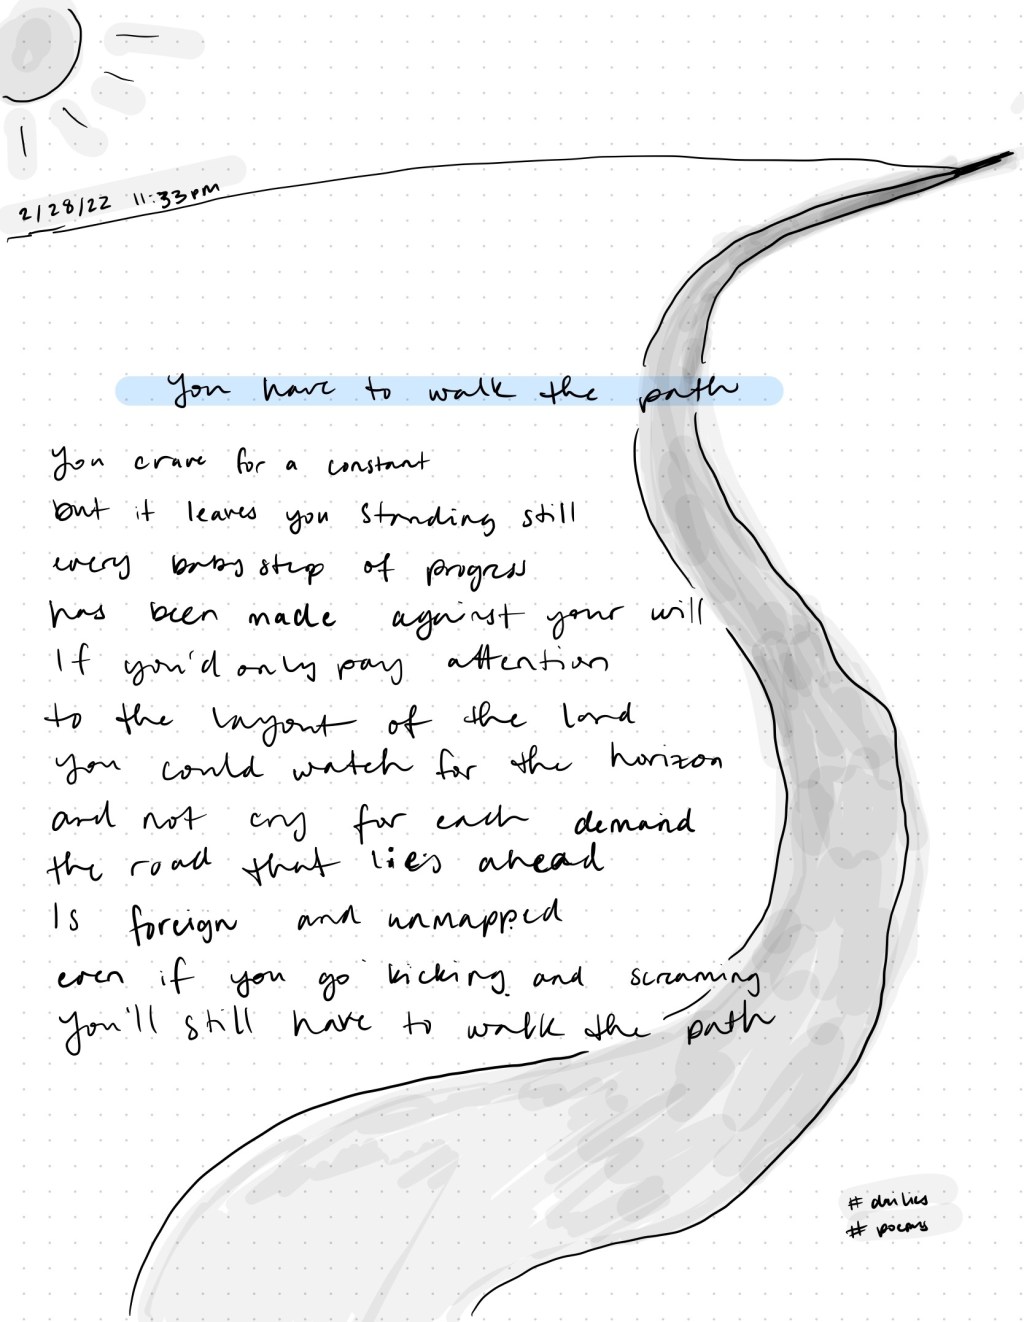 2/28/22 11:33pm
You have to walk the path
You crave for a constant
but it leaves you standing still
every baby step of progress
has been made against your will
If you'd only pay attention
to the layout of the land
you could watch for the horizon
and not cry for each demand
the road that lies ahead
Is foreign and unmapped
even if you go kicking and screaming
You'll still have to walk the path
# dailies
# poems